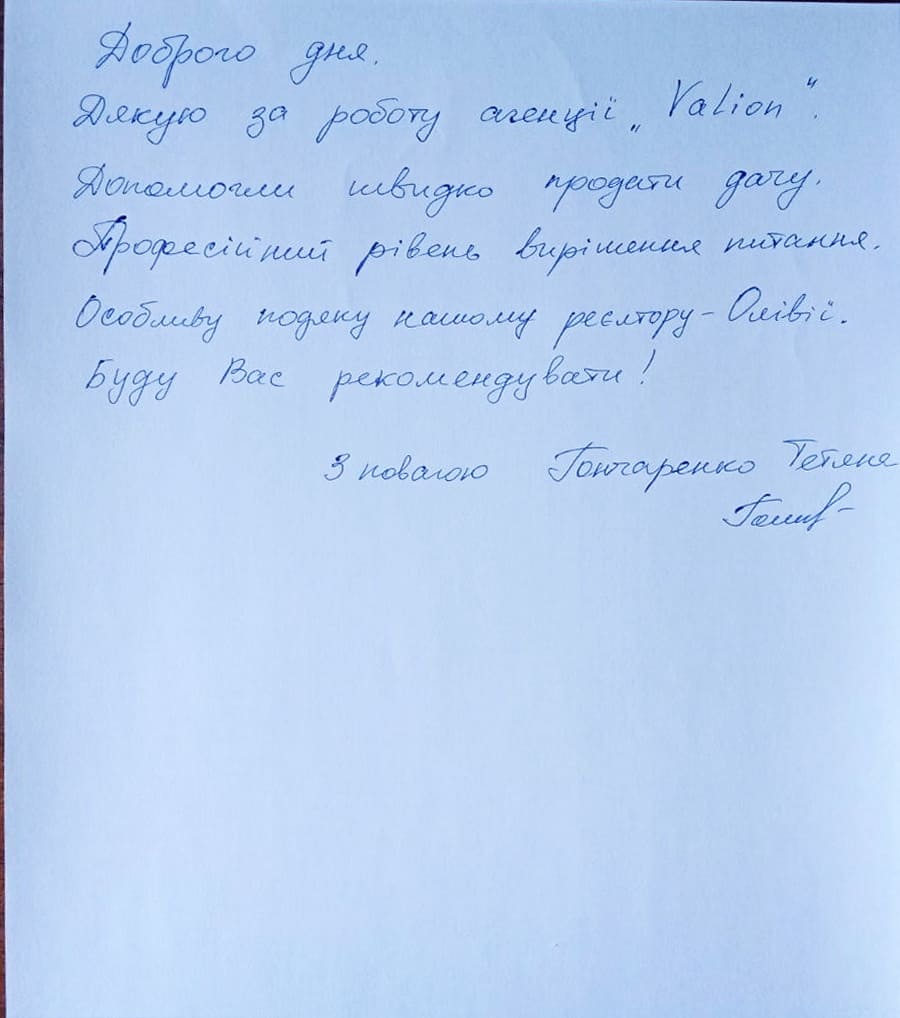 Доброго дня.
Дякую за роботу агенції „Valion".
Допомогли швидко продати дачу.
Професійний рівень вирішення питання.
Особливу подяку нашому реєлтору - Олівії.
Буду Вас рекомендувати!
З повагою Гончаренко Тетяна